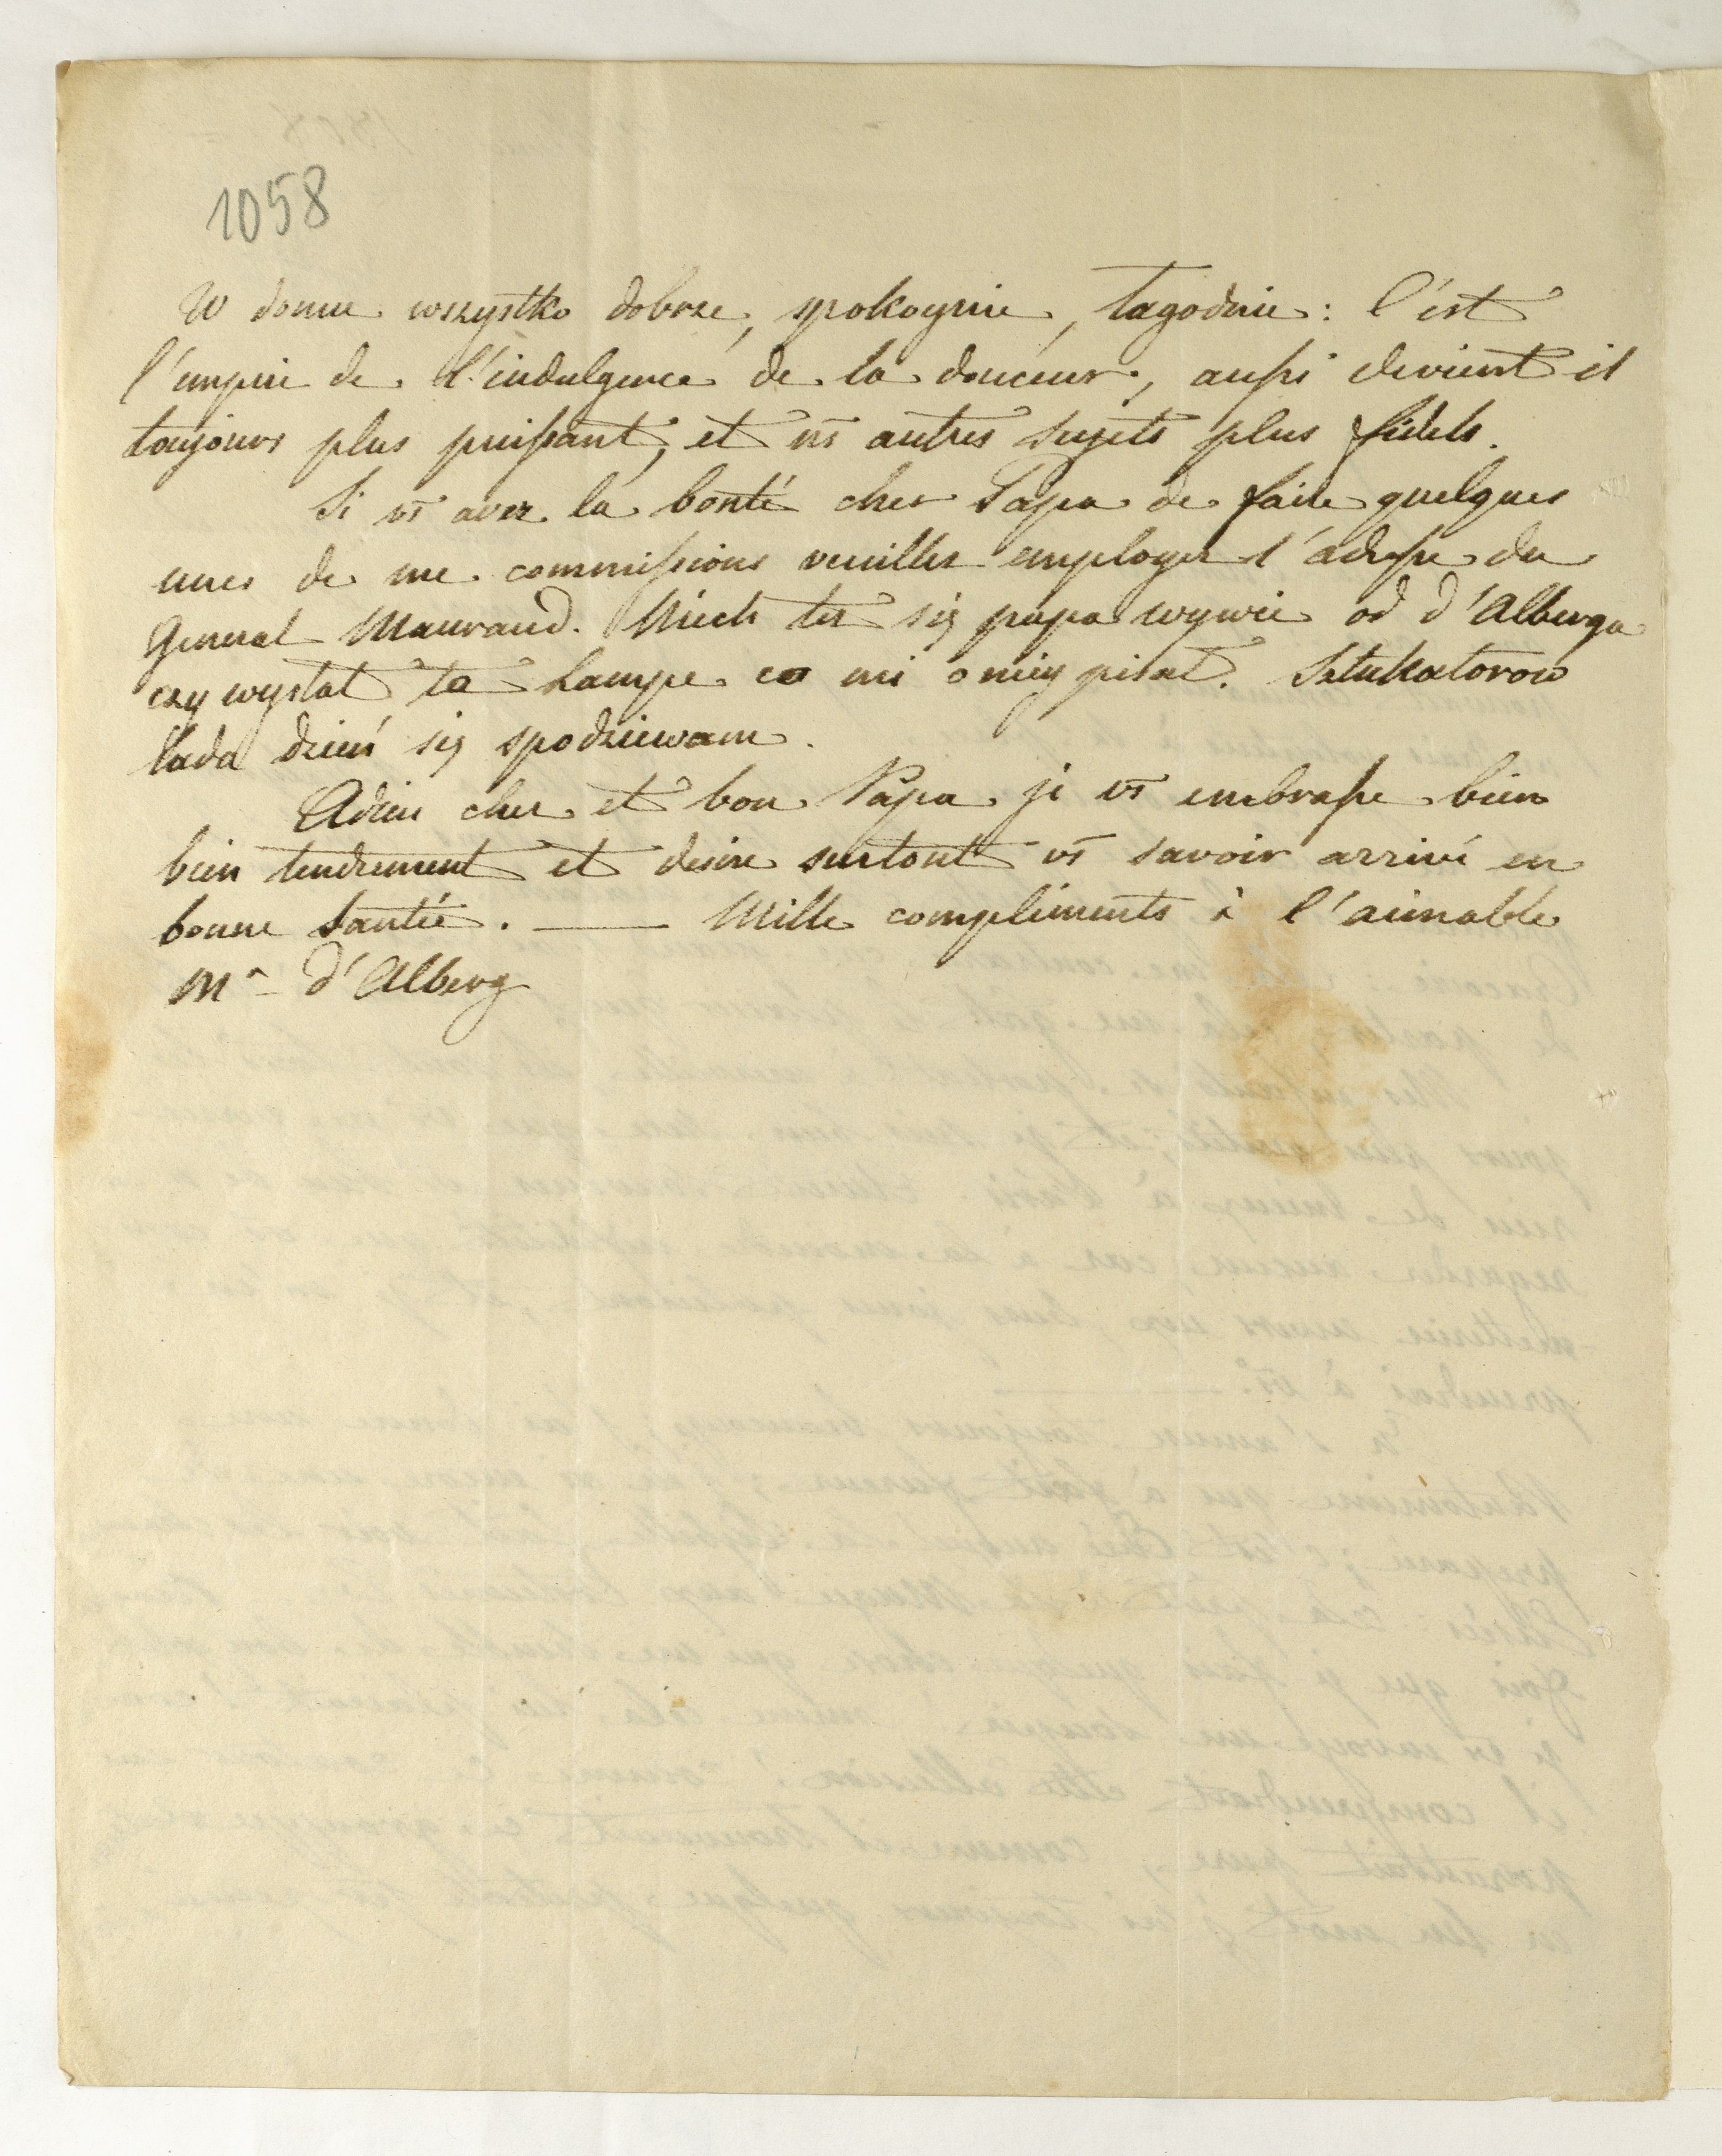 1058
W domu wszystko dobrze, spokoynie, łagodnie: C'est
l'empire de l'indulgence de la douceur, aussi devient il
toujours plus puissant, et ns autres sujets plus fidels.
Si vs avez la bonté cher Papa de faire quelques
unes de me commissions veuillez employer l'adresse du
General Mauraud. Niech też się papa wywie od d'Alberga
czy wysłał ta Lampe co mi o niey pisał. Sztukatorow
lada dzień się spodziewam.
Adieu cher et bon Papa je vs embrasse bien
bien tendrement et desire surtout vs savoir arrivé en
bonne santée. — Mille compliments à l'aimable
Mr d'Alberg